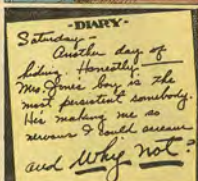 -DIARY-
Saturday-
Another day of
hiding. Honestly
Mrs. Jones' boy is the
most persistent somebody.
He's making me so
nervous I could scream
and Why Not?